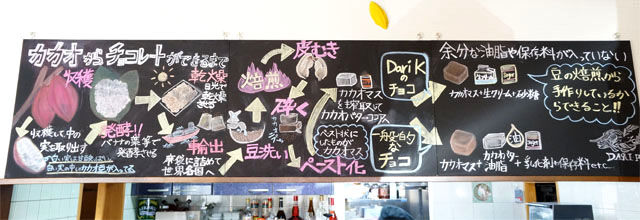 カカオからチョコレートができるまで
収穫
収穫して、中の
実を取り出す
白い実の中にカカオ豆が入ってる
発酵!!
バナナの葉等で
発酵させる
乾燥
日光で
乾燥
させる
輸出
麻袋に詰めて
世界各国へ
豆洗い
焙煎
皮むき
砕く
ペースト化
ペースト状に
したものが
カカオマス
カカオマス
を搾取って
カカオバターココア
Dari K
の
チョコ
一般的な
チョコ
余分な油脂や保存料が入っていない
カカオマス+生クリーム+砂糖
豆の焙煎から
手作りしているから
できること!!
カカオマス+カカオバター
油脂
+乳化剤や保存料etc...
DARI K